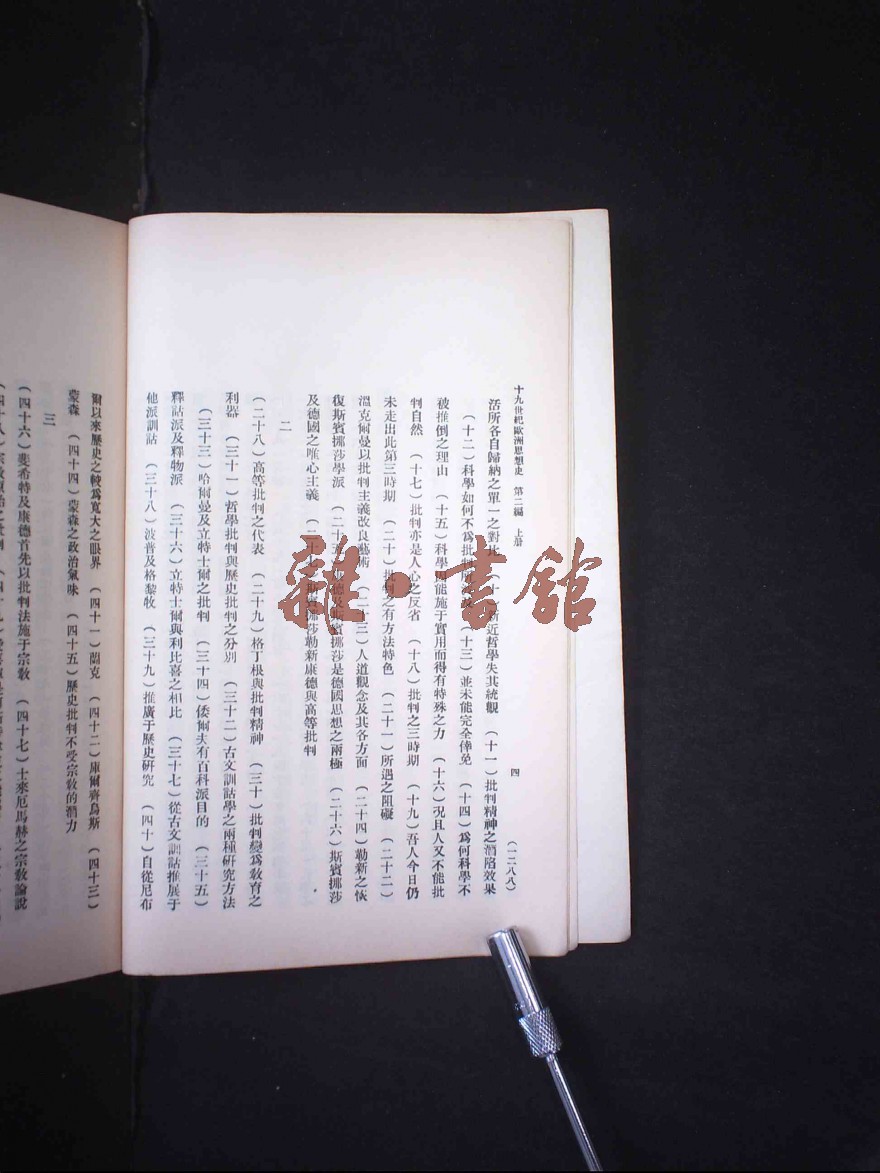 十九世紀歐洲思想史 第二編 上册 四 (一二八八)
活所各自歸納之單一之對 (十)新近哲學失其統觀 (十一)批判精神之消陷效果
(十二)科學如何不爲批判 (十三)並未能完全倖免 (十四)爲何科學不
被推倒之理由 (十五)科學因能施于實用而得有特殊之力 (十六)况且人又不能批
判自然 (十七)批判亦是人心之反省 (十八)批判之三時期 (十九)吾人今日仍
未走出此第三時期 (二十)批判之有方法特色 (二十一)所遇之阻礙 (二十二)
溫克爾曼以批判主義改良藝術 (二十三)人道觀念及其各方面 (二十四)勒新之恢
復斯賓挪莎學派 (二十五)康德及斯賓挪莎是德國思想之兩極 (二十六)斯賓挪莎
及德國之唯心主義 (二十七)斯賓挪莎勒新康德與高等批判
二
(二十八)高等批判之代表 (二十九)格丁根與批判精神 (三十)批判變爲教育之
利器 (三十一)哲學批判與歷史批判之分別 (三十二)古文訓詁學之兩種研究方法
(三十三)哈爾曼及立特士爾之批判 (三十四)倭爾夫有百科派目的 (三十五)
釋詁派及釋物派 (三十六)立特士爾與利比喜之相比 (三十七)從古文訓詁推展于
他派訓詁 (三十八)波普及格黎牧 (三十九)推廣于歷史研究 (四十)自從尼布
爾以來歷史之較爲寬大之眼界 (四十一)蘭克 (四十二)庫爾齊烏斯 (四十三)
蒙森 (四十四)蒙森之政治氣味 (四十五)歷史批判不受宗教的潛力
三
(四十六)斐希特及康德首先以批判法施于宗教 (四十七)士來厄馬赫之宗教論說
雜·書館